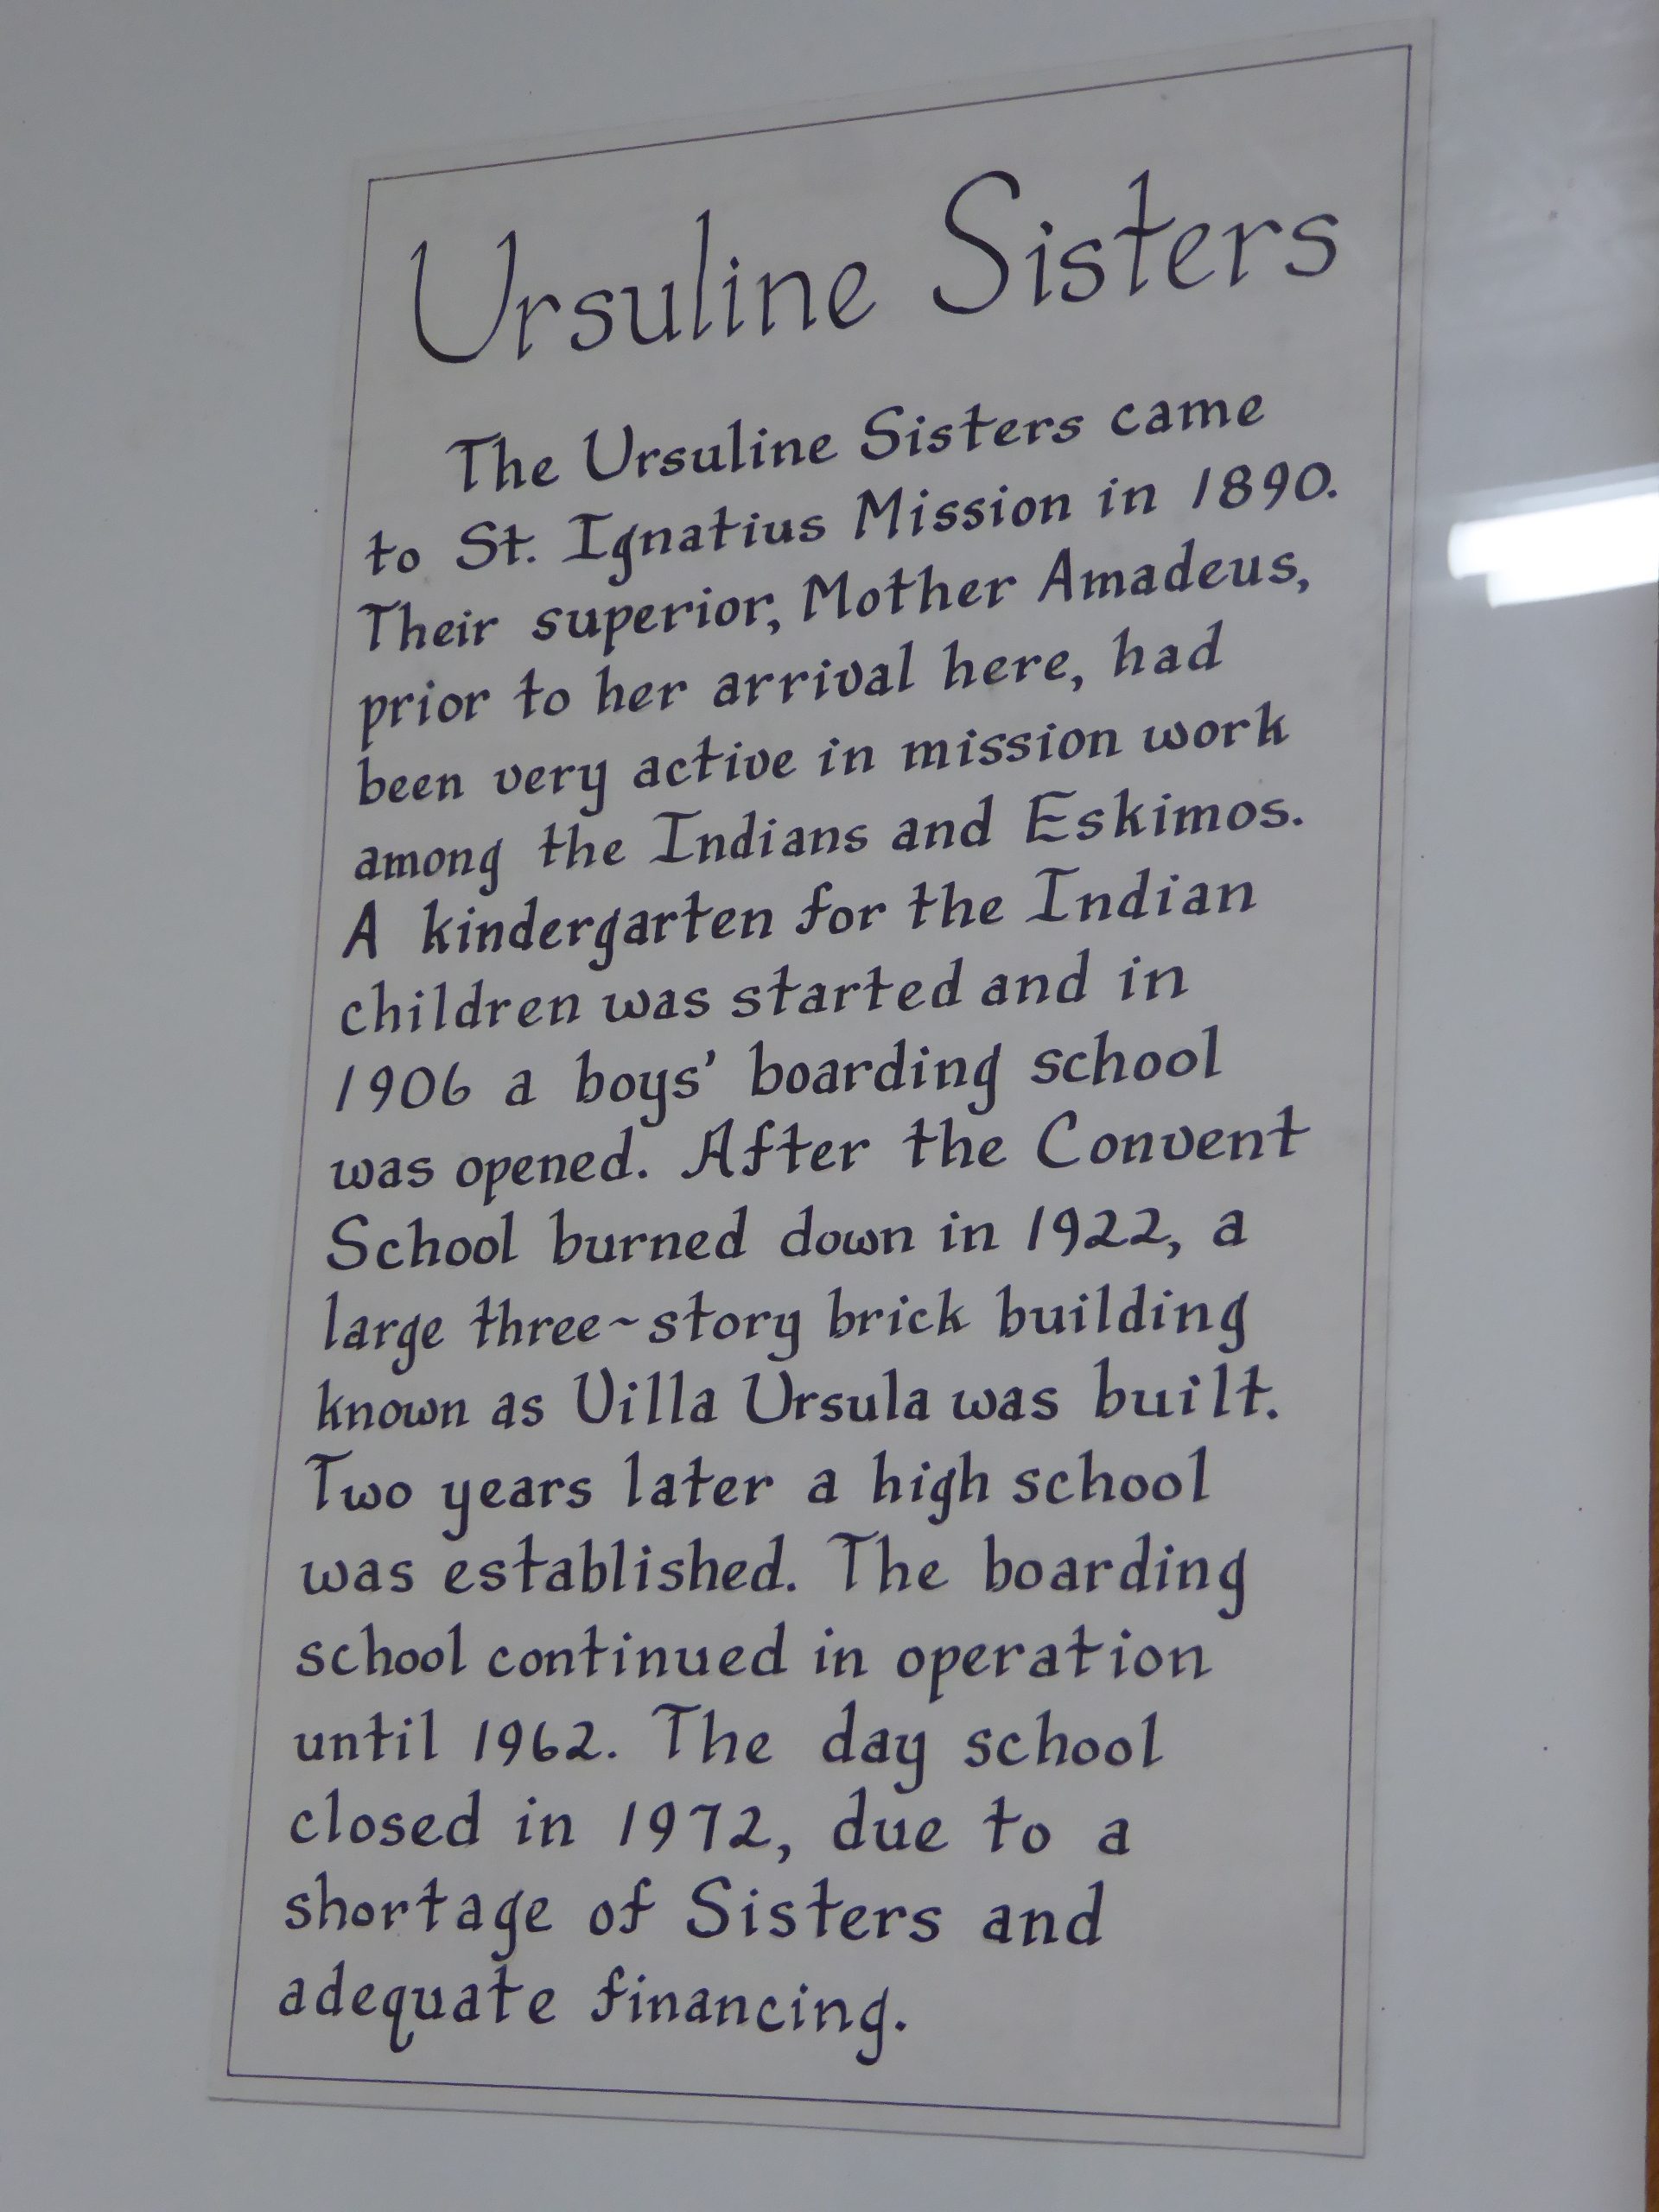 Ursuline Sisters
The Ursuline Sisters came
to St. Ignatius Mission in 1890.
Their superior, Mother Amadeus,
prior to her arrival here, had
been very active in mission work
among the Indians and Eskimos.
A kindergarten for the Indian
children was started and in
1906 a boys' boarding school
was opened. After the Convent
School burned down in 1922, a
large three~story brick building
known as Villa Ursula was built.
Two years later a high school
was established. The boarding
school continued in operation
until 1962. The day school
closed in 1972, due to a
shortage of Sisters and
adequate financing.